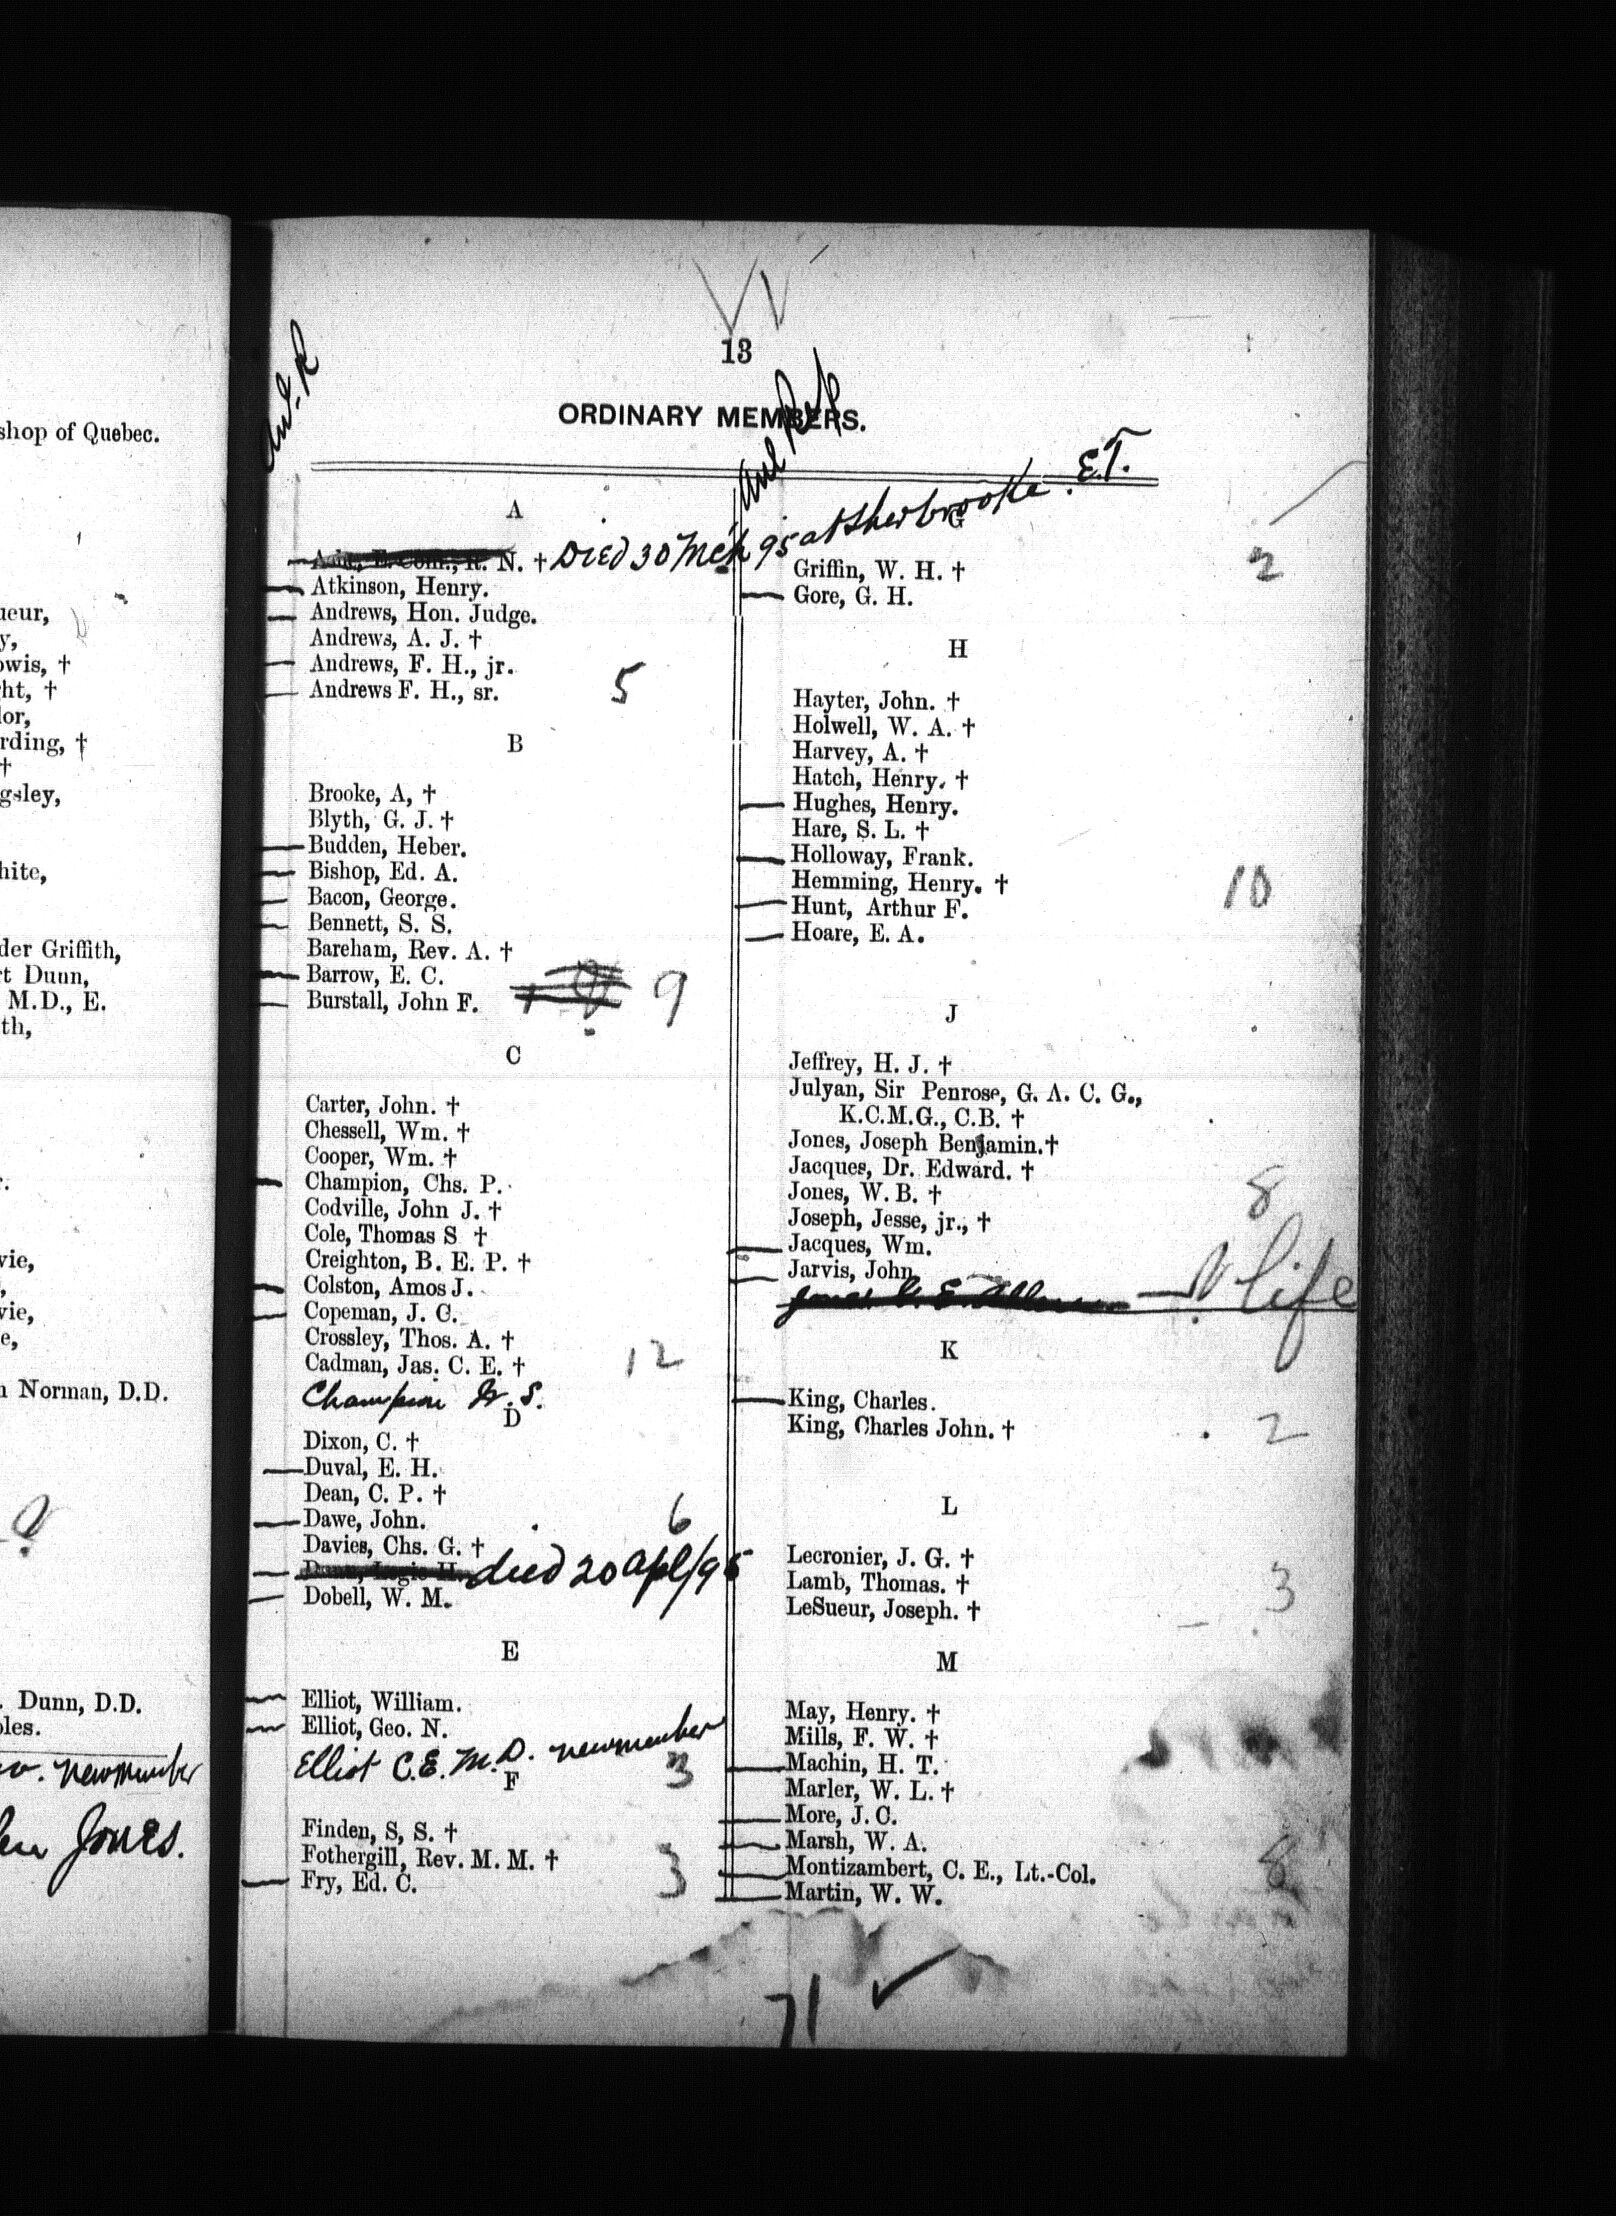 shop of Quebec.
ueur,
y,
owis, †
ht, †
lor,
rding, †
†
gsley,
hite,
der Griffith,
rt Dunn,
M.D., E.
th,
vie,
vie,
e,
n Norman, D.D.
. Dunn, D.D.
oles.
newmember
Jones.
13
ORDINARY MEMBERS.
A
R. N. † Died 30 Mch 95 at Sherbrooke E.T.
Atkinson, Henry.
Andrews, Hon. Judge.
Andrews, A. J. †
Andrews, F. H., jr.
Andrews F. H., sr. 5
B
Brooke, A, †
Blyth, G. J. †
Budden, Heber.
Bishop, Ed. A.
Bacon, George.
Bennett, S. S.
Bareham, Rev. A. †
Barrow, E. C.
Burstall, John F. 9
C
Carter, John. †
Chessell, Wm. †
Cooper, Wm. †
Champion, Chs. P.
Codville, John J. †
Cole, Thomas S †
Creighton, B. E. P. †
Colston, Amos J.
Copeman, J. C.
Crossley, Thos. A. †
Cadman, Jas. C. E. † 12
Champion W. S.
D
Dixon, C. †
Duval, E. H.
Dean, C. P. †
Dawe, John. 6
Davies, Chs. G. †
Dunn, Logie H. died 20 Apl/95
Dobell, W. M.
E
Elliot, William.
Elliot, Geo. N.
Elliot C.E. M.D. newmember
F 3
Finden, S, S. †
Fothergill, Rev. M. M. †
Fry, Ed. C. 3
G
Griffin, W. H. † 2
Gore, G. H.
H
Hayter, John. †
Holwell, W. A. †
Harvey, A. †
Hatch, Henry. †
Hughes, Henry.
Hare, S. L. †
Holloway, Frank.
Hemming, Henry. † 10
Hunt, Arthur F.
Hoare, E. A.
J
Jeffrey, H. J. †
Julyan, Sir Penrose, G. A. C. G.,
K.C.M.G., C.B. †
Jones, Joseph Benjamin. †
Jacques, Dr. Edward. †
Jones, W. B. † 8
Joseph, Jesse, jr., †
Jacques, Wm.
Jarvis, John
life
K
King, Charles.
King, Charles John. † 2
L
Lecronier, J. G. †
Lamb, Thomas. † 3
LeSueur, Joseph. †
M
May, Henry. †
Mills, F. W. †
Machin, H. T.
Marler, W. L. †
More, J. C.
Marsh, W. A.
Montizambert, C. E., Lt.-Col. 8
Martin, W. W.
71 ✓